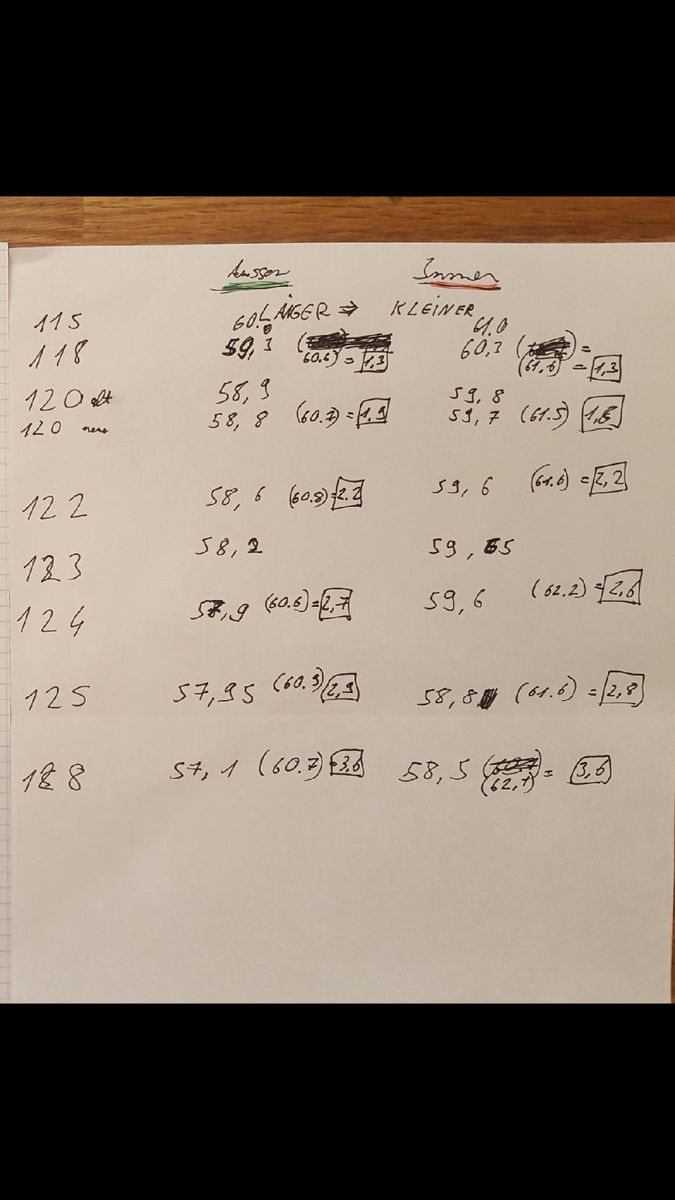 Aussen Innen
LÄNGER ⇒ KLEINER
115 60.0 61.0
118 59,3 (60.6) = 1,3 60,3 (61,6) = 1,3
120 alt 58,9 59,8
120 neu 58,8 (60.7) = 1,9 59,7 (61.5) 1,8
122 58,6 (60.8) = 2.2 59,6 (61.6) = 2,2
123 58,2 59,65
124 57,9 (60.6) = 2,7 59,6 (62.2) = 2,6
125 57,95 (60.9) 2,9 58,8 (61.6) = 2,8
128 57,1 (60.7) = 3,6 58,5 (62,1) = 3,6